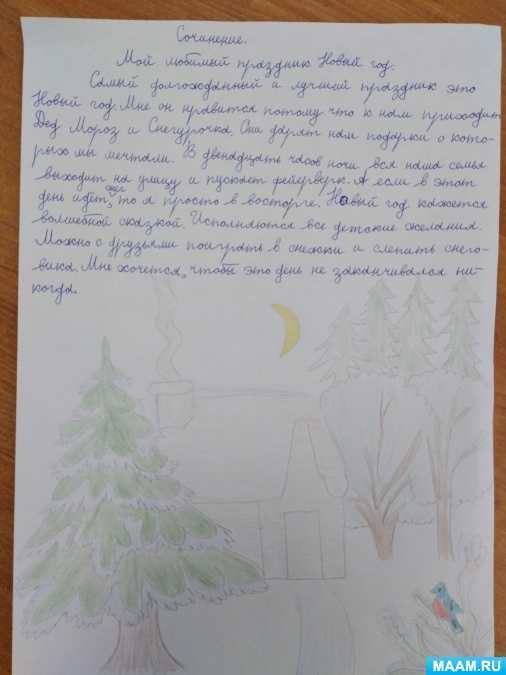 Сочинение.
Мой любимый праздник Новый год.
Самый долгожданный и лучший праздник это
Новый год. Мне он нравится потому что к нам приходит
Дед Мороз и Снегурочка. Они дарят нам подарки о кото-
рых мы мечтали. В двенадцать часов ночи вся наша семья
выходит на улицу и пускает фейерверк. А если в этот
день идет снег, то я просто в восторге. Новый год кажется
волшебной сказкой. Исполняются все детские желания.
Можно с друзьями поиграть в снежки и слепить снего-
вика. Мне хочется, чтобы это день не заканчивался ни-
когда.
MAAM.RU